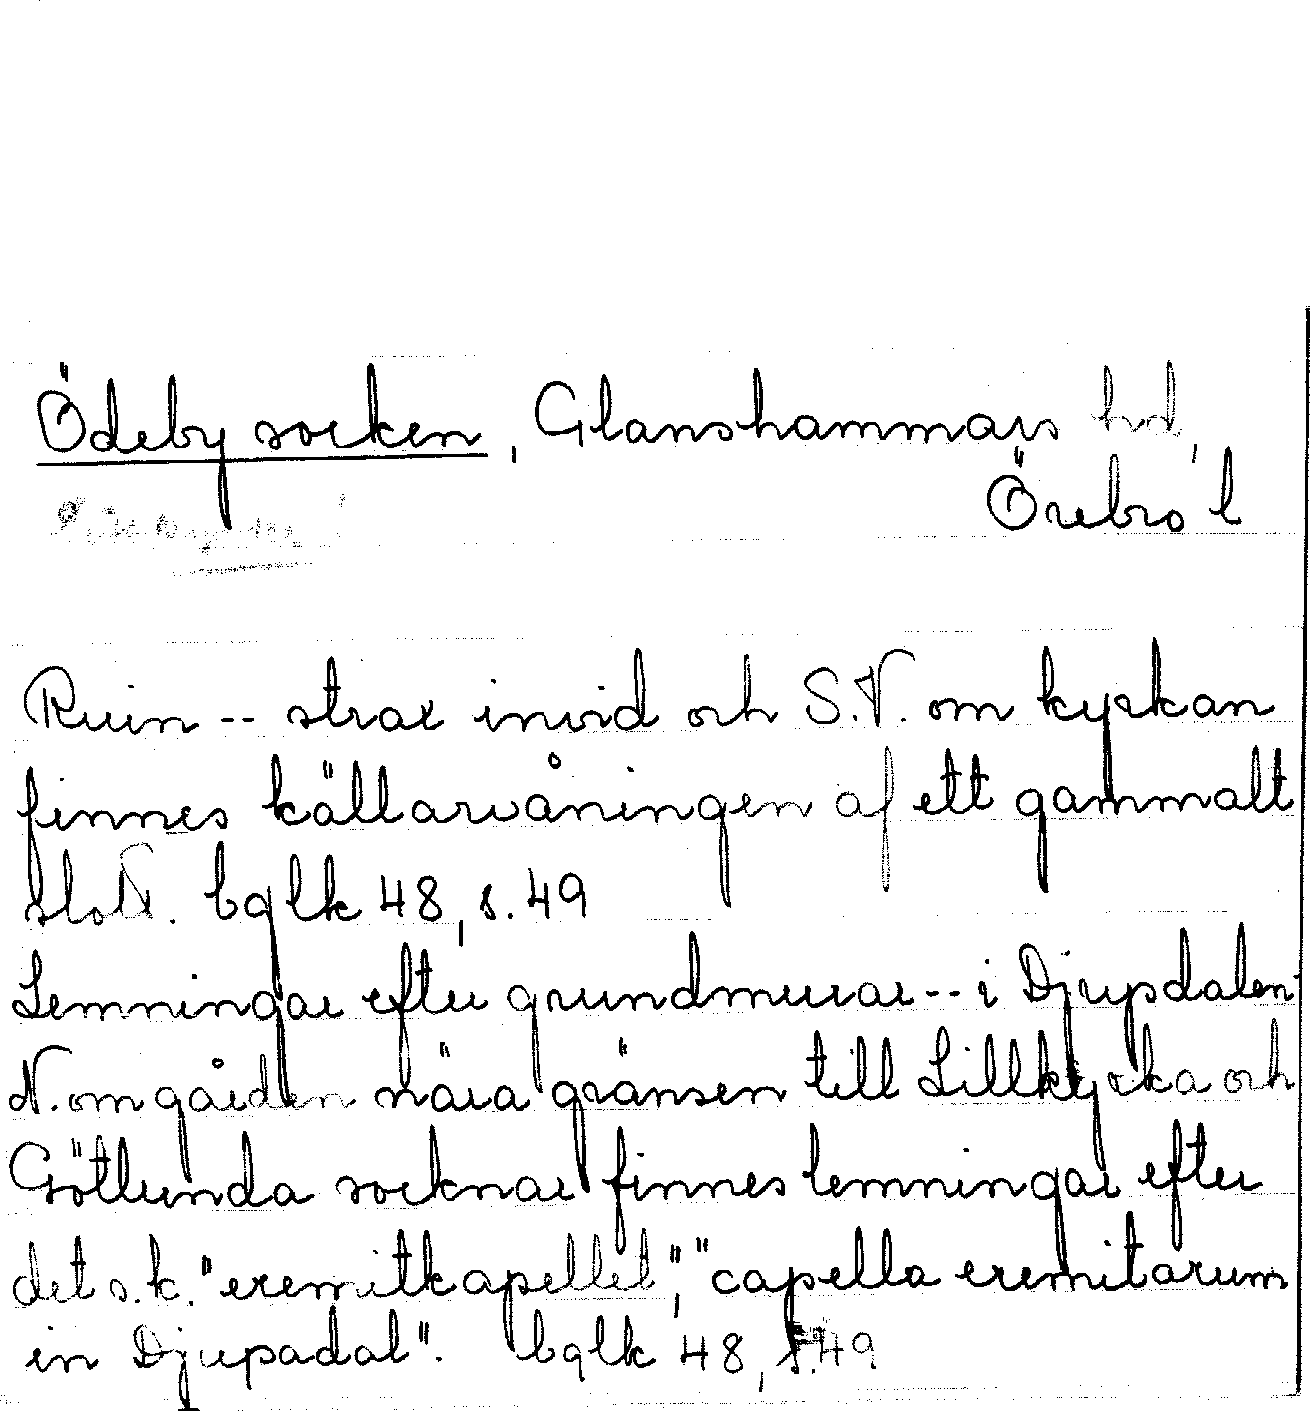 Ödeby socken, Glanshammars hd,
Örebro l
Ruin -- strax invid och S.V. om kyrkan
finnes källarvåningen af ett gammalt
slott. bglk 48, s. 49
Lemningar efter grundmurar -- i Djupdalen
N. om gården nära gränsen till Lillkyrka och
Götlunda socknar finnes lemningar efter
det s.k. "eremitkapellet", "capella eremitarum
in Djupadal". bglk 48, s. 49